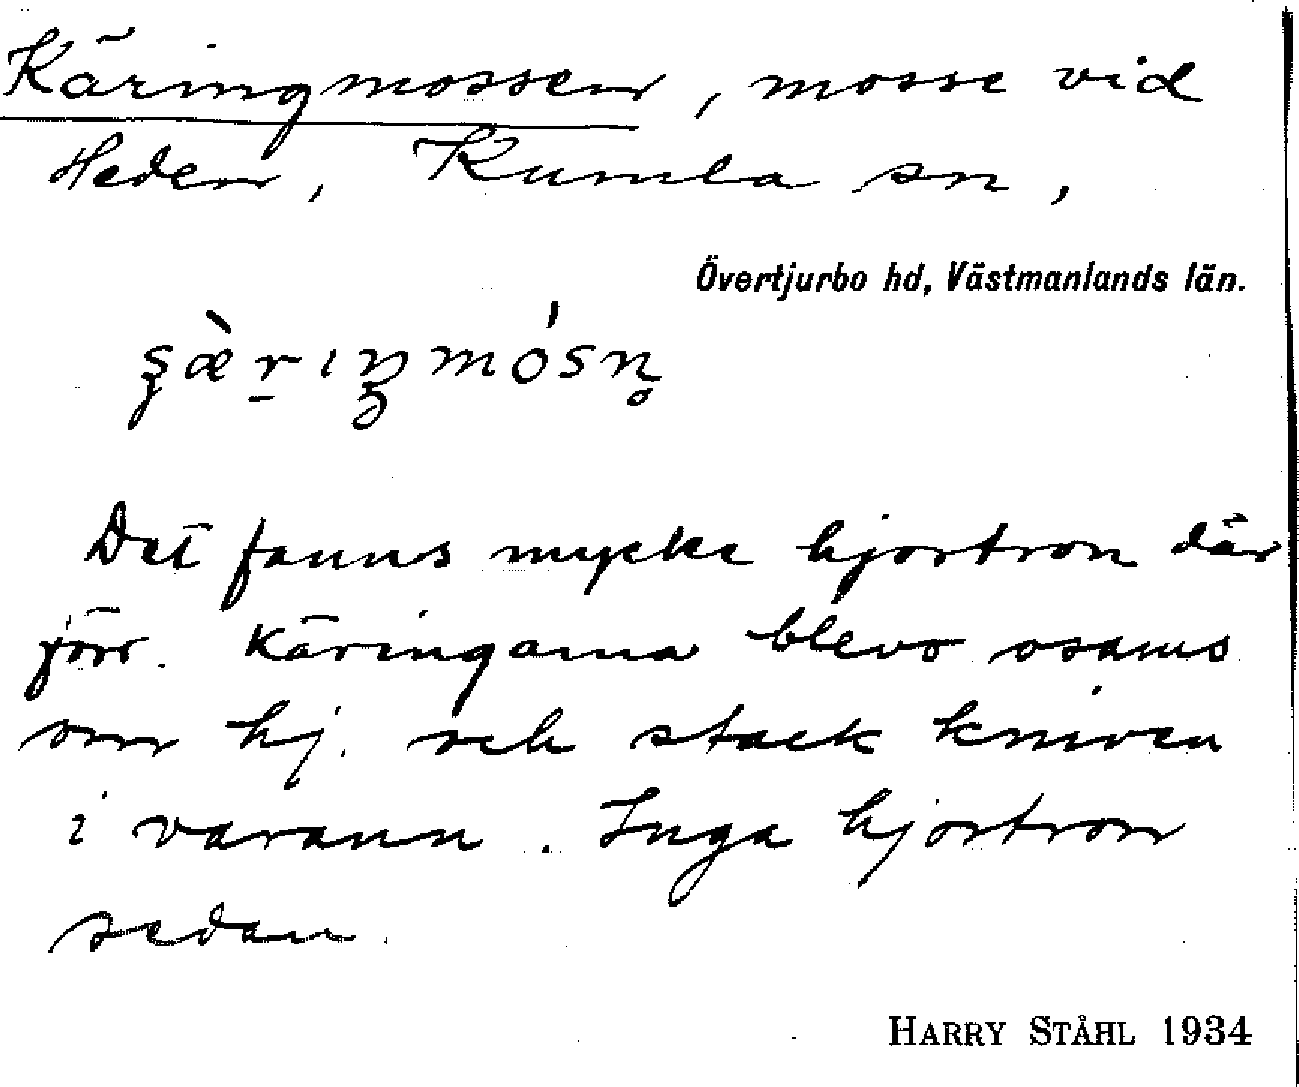 Käringmossen, mosse vid
Heden, Kumla sn,
Övertjurbo hd, Västmanlands län.
Det fanns mycke hjortron där
förr. Käringarna blevo osams
om hj. och stack kniven
i varann. Inga hjortron
sedan.
HARRY STÅHL 1934